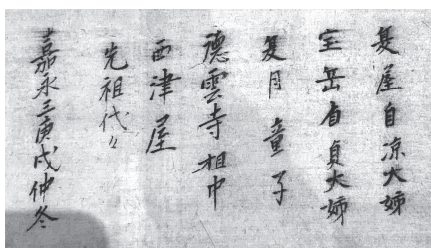 夏屋自凉大姉
宝岳自貞大姉
夏月童子
德雲寺祖中
西津屋
先祖代々
嘉永三庚戌仲冬